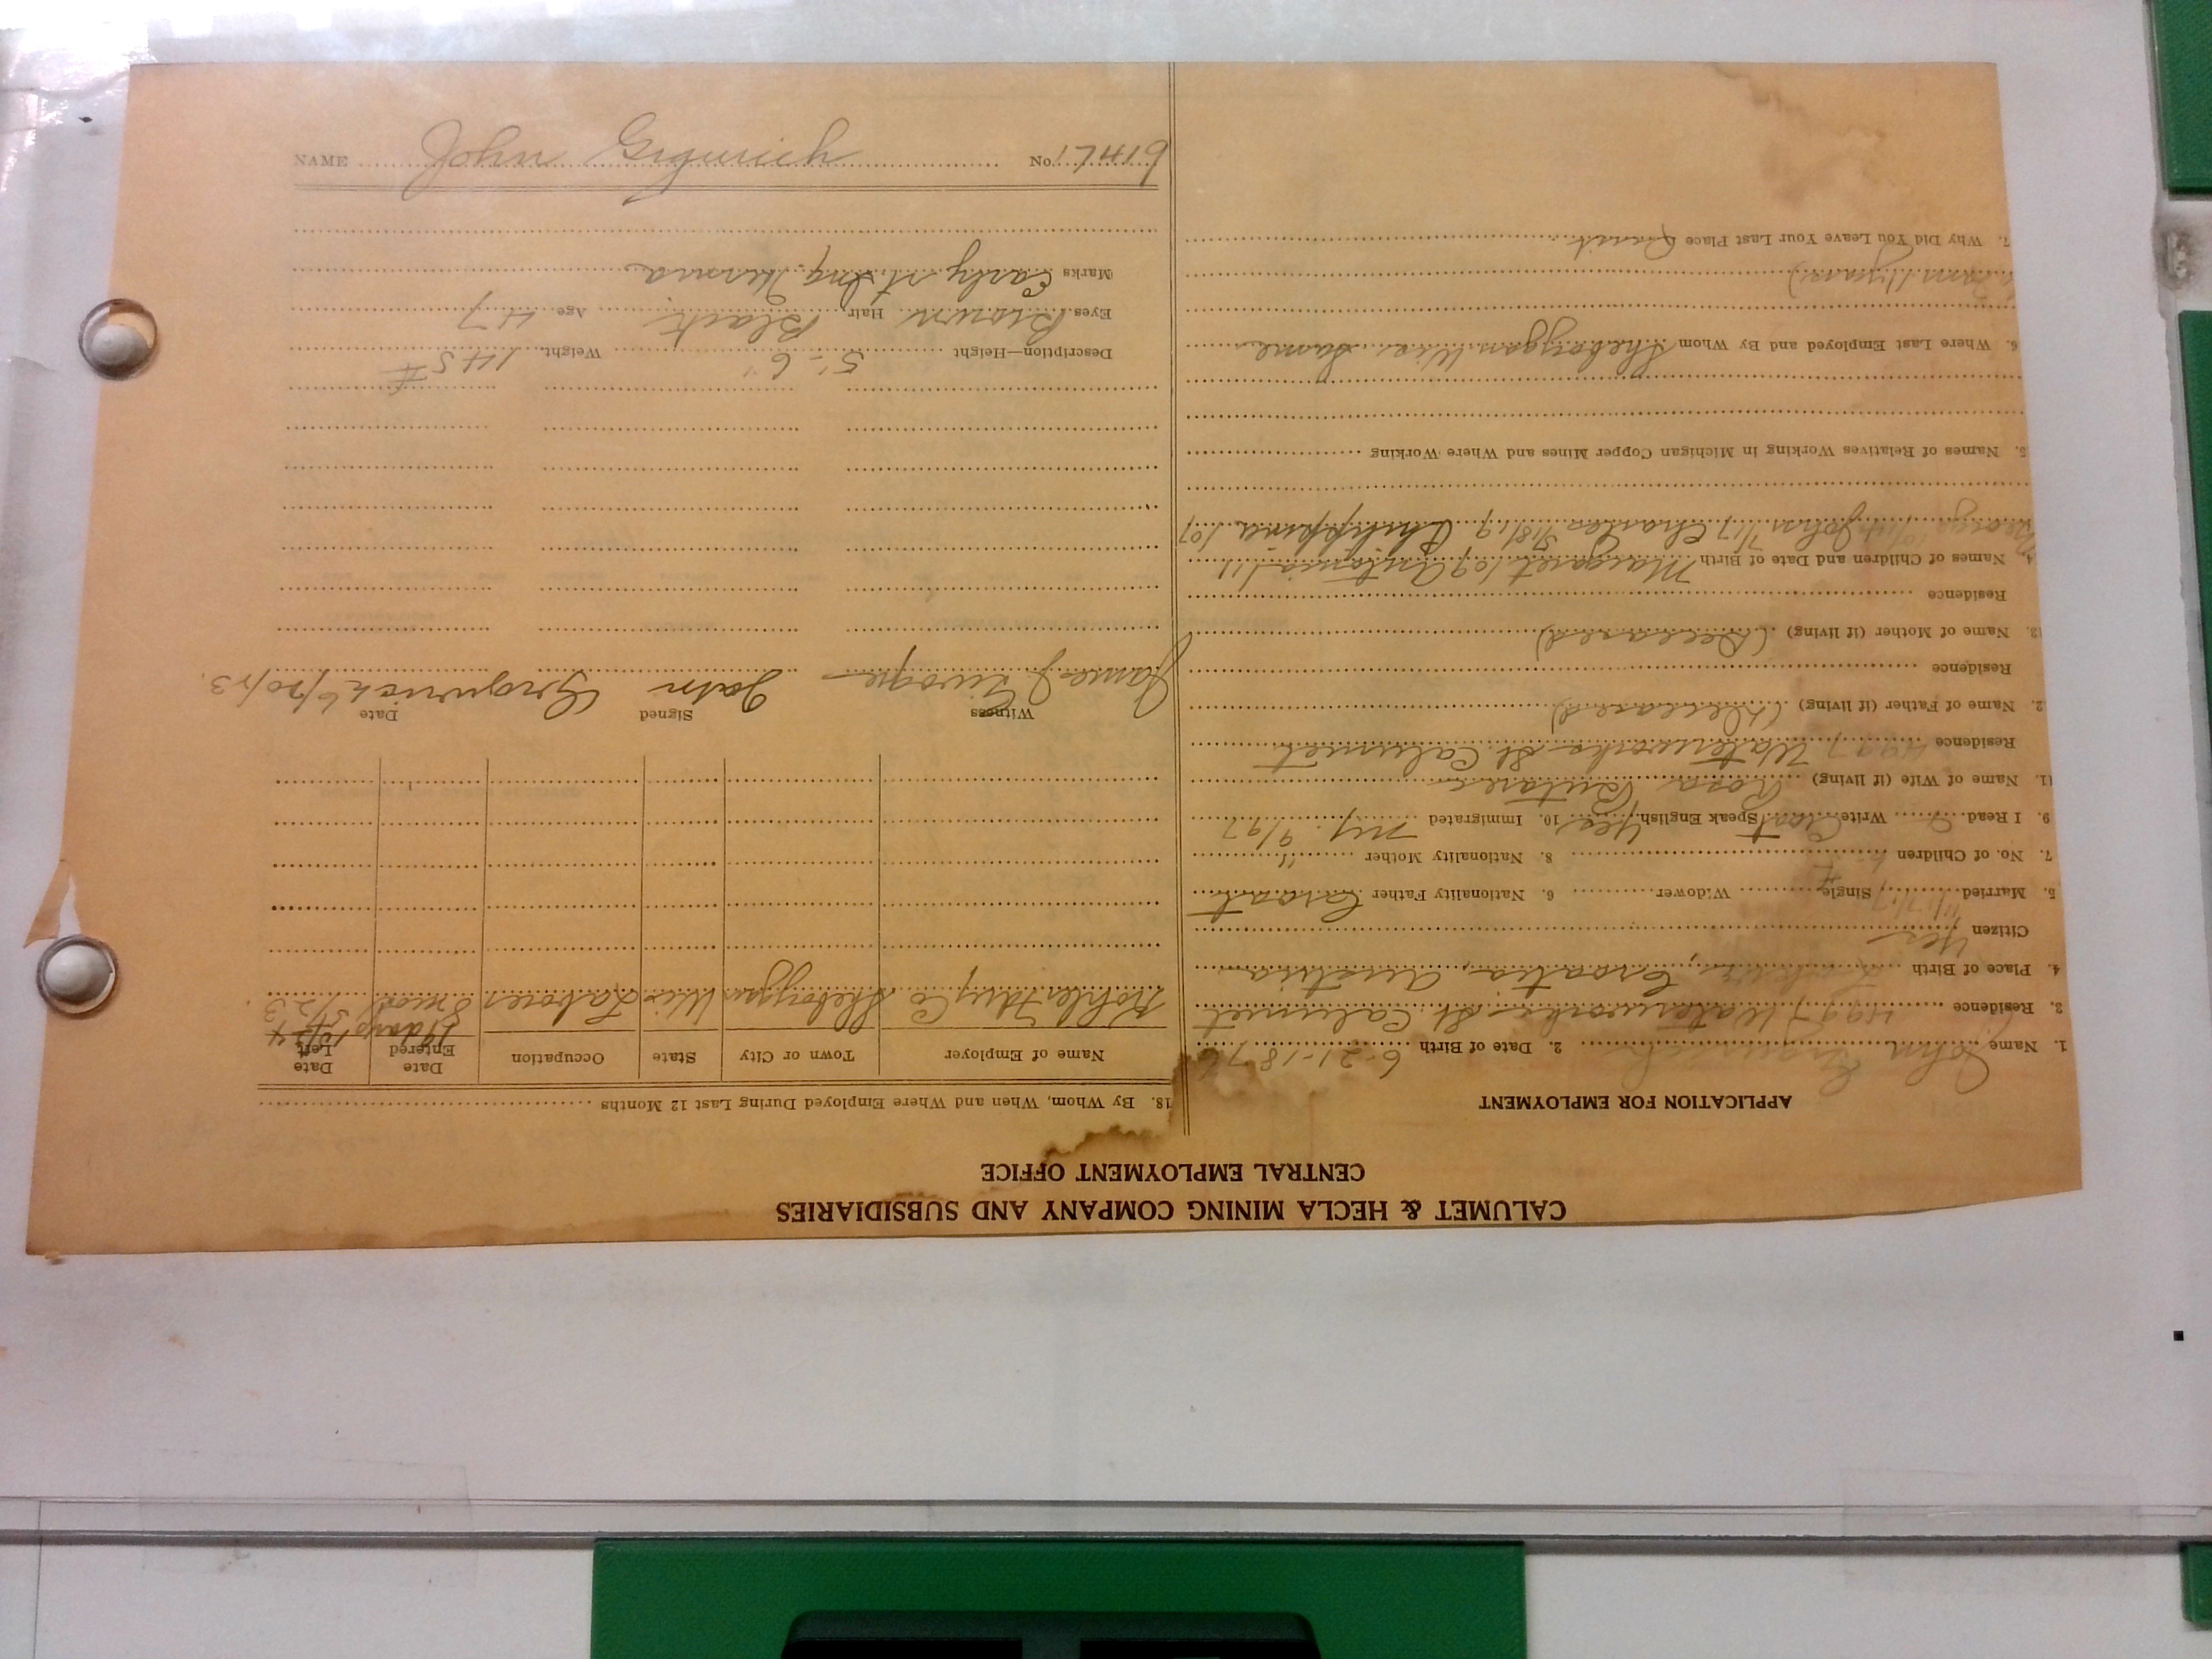 CALUMET & HECLA MINING COMPANY AND SUBSIDIARIES
CENTRAL EMPLOYMENT OFFICE
APPLICATION FOR EMPLOYMENT
1. Name John Grgurich 2. Date of Birth 6-21-1876
3. Residence 4997 Waterworks St. Calumet
4. Place of Birth Croatia, Austria
Citizen Yes
5. Married Single Widower 6. Nationality Father Croat
7. No. of Children 8. Nationality Mother "
9. I Read Write Croat Speak English Yes 10. Immigrated N.Y. 9/97
11. Name of Wife (if living) Rosa
Residence 4997 Waterworks St. Calumet
12. Name of Father (if living) (Deceased)
Residence
13. Name of Mother (if living) (Deceased)
Residence
4. Names of Children and Date of Birth Margaret /09 Antonia /11
John 7/17 Charles 3/8/19 Philippina /07
5. Names of Relatives Working in Michigan Copper Mines and Where Working
6. Where Last Employed and By Whom Sheboygan Wis. Same
7. Why Did You Leave Your Last Place Quit
18. By Whom, When and Where Employed During Last 12 Months
Name of Employer Town or City State Occupation Date Entered Date Left
Kohler Mfg Co Sheboygan Wis Laborer 8 mos 5/23
Witness Signed Date
James J John Grgurich 6/20/23.
Description—Height 5'-6" Weight 145 #
Eyes Brown Hair Black Age 47
Marks Early st. Ing. Hernia
NAME John Grgurich No. 17419